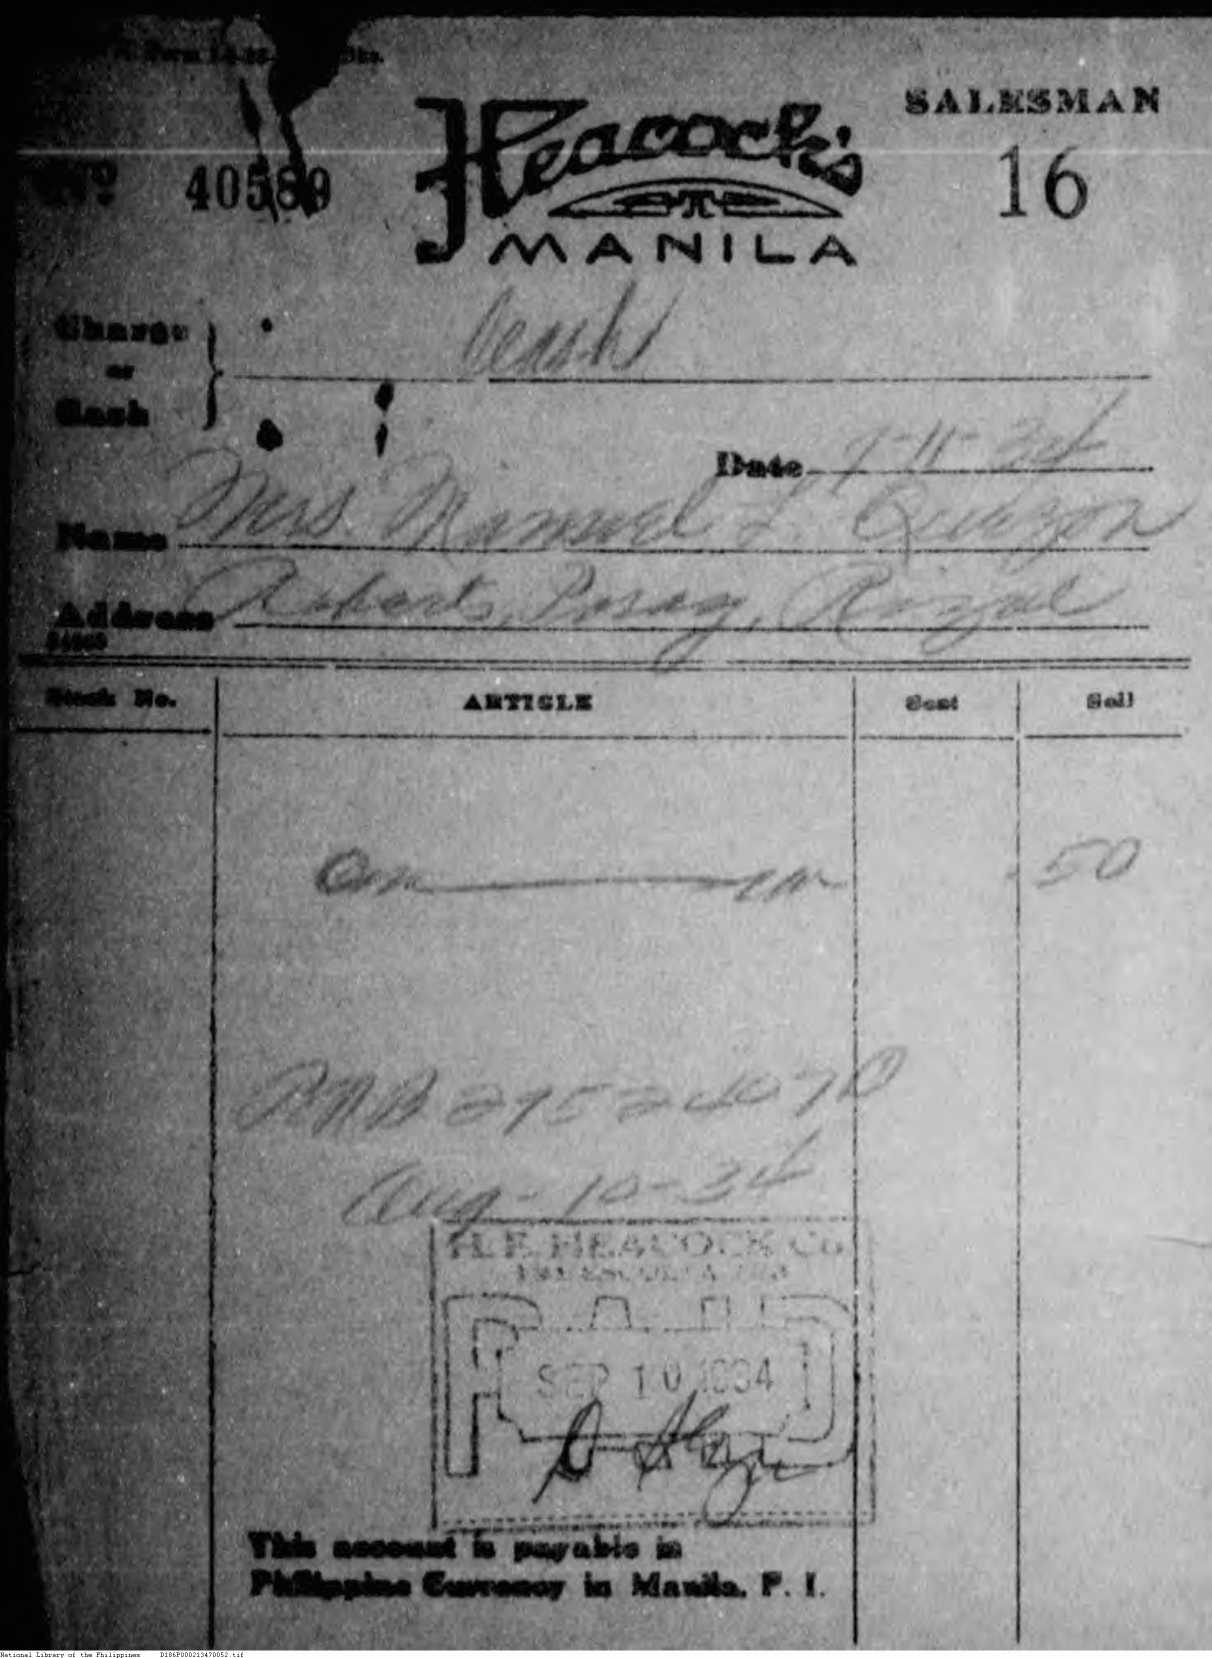 SALESMAN
Heacock's
Nº 40589
16
MANILA
Charge
or
Cash
Cash
Date 9-11-34
Name Mrs. Manuel L. Quezon
Address Roberts, Pasay, Rizal
Stock No. ARTICLE Sent Sell
.50
Aug-10-34
H. E. HEACOCK Co.
PAID
SEP 10 1934
This account is payable in
Philippine Currency in Manila. P. I.
National Library of the Philippines D186P000213470052.tif